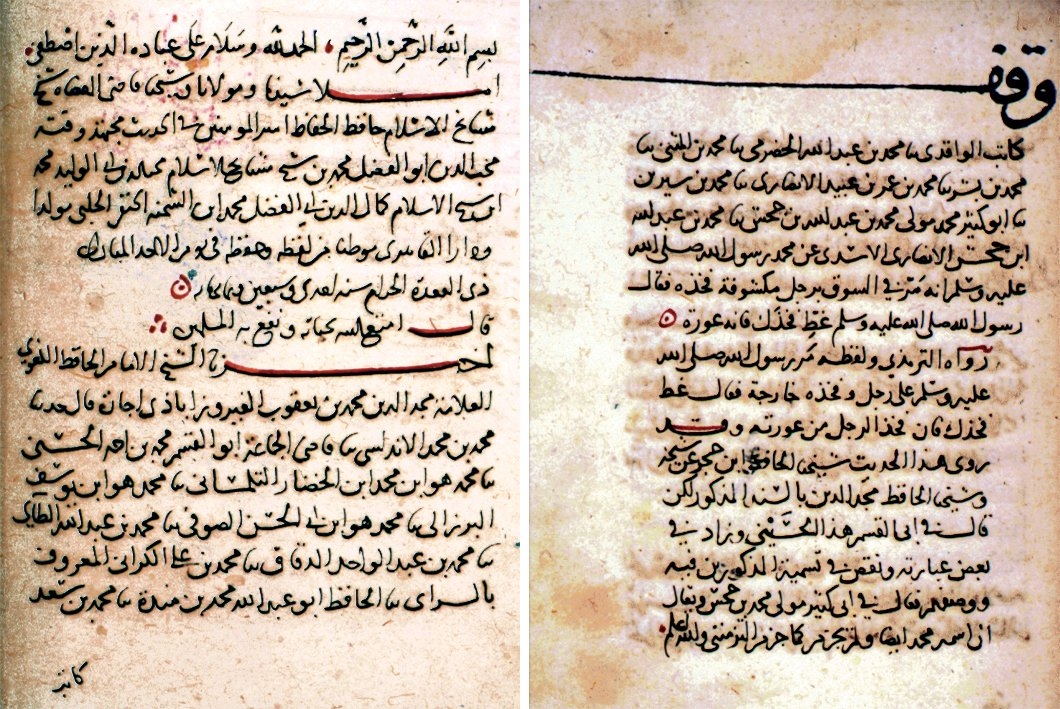 بسم الله الرحمن الرحيم، الحمد لله وسلام على عباده الذين اصطفى.
سيدنا ومولانا وشيخنا قاضي القضاه شيخ
مشايخ الاسلام حافظ الحفاظ امير المومنين في الحديث مجتهد وقته
محب الدين ابو الفضل محمد بن شيخ مشايخ الاسلام محب الدين ابي الوليد محمد
ابن شيخ الاسلام كمال الدين ابي الفضل محمد ابن الشحنه الحنفي الحلبي مولدا
ودارا القاهري موطنا من لفظه وحفظه في يوم الاحد المبارك
ذي القعدة الحرام سنه احدى وسبعين وثمانمايه ۞
قال امتع الله بحياته ونفع به المسلمين
اخبرنا الشيخ الامام الحافظ اللغوي
العلامة مجد الدين محمد بن يعقوب الفيروزاباذي اجازة قال حدثنا
محمد بن محمد الاندلسي نا قاضي الجماعة ابو القسم محمد بن احمد الحسني
نا محمد هو ابن محمد ابن الخضار التلمساني نا محمد هو ابن يوسف
البرزالي نا محمد هو ابن ابي الحسن الصوفي نا محمد بن عبد الله الطائي
نا محمد بن عبد الواحد الدقاق نا محمد بن علي الكراني المعروف
نا الحافظ ابو عبد الله محمد بن مندة نا محمد بن سعد
كاتب
وقف
كاتب الواقدي نا محمد بن عبد الله الحضرمي نا محمد بن المثنى نا
محمد بن بشر نا محمد بن عمر بن عبيد الانصاري نا محمد بن سيرين
نا ابو كثير محمد مولى محمد بن عبد الله بن جحش نا محمد بن عبد الله
ابن جحش الانصاري الاسدي عن محمد رسول الله صلى الله
عليه وسلم انه مر في السوق برجل مكشوفة فخذه فقال
رسول الله صلى الله عليه وسلم غط فخذك فانه عورة ۞
رواه الترمذي ولفظه مر رسول الله صلى الله
عليه وسلم على رجل وفخذه خارجة فقال غط
فخذك فان فخذ الرجل من عورته وقد
روى هذا الحديث شيخي الحافظ ابن حجر عن شيخه
وشيخي الحافظ مجد الدين بالسند المذكور لكن
قال في ابي القسم هذا الحسيني وزاد في
بعض عبارته ونقص في تسمية المذكورين فيه
ووصفهم فقال في ابي كثير مولى محمد بن جحش ويقال
ان اسمه محمد ايضا ولم يجزم كما جزم الترمذي والله اعلم